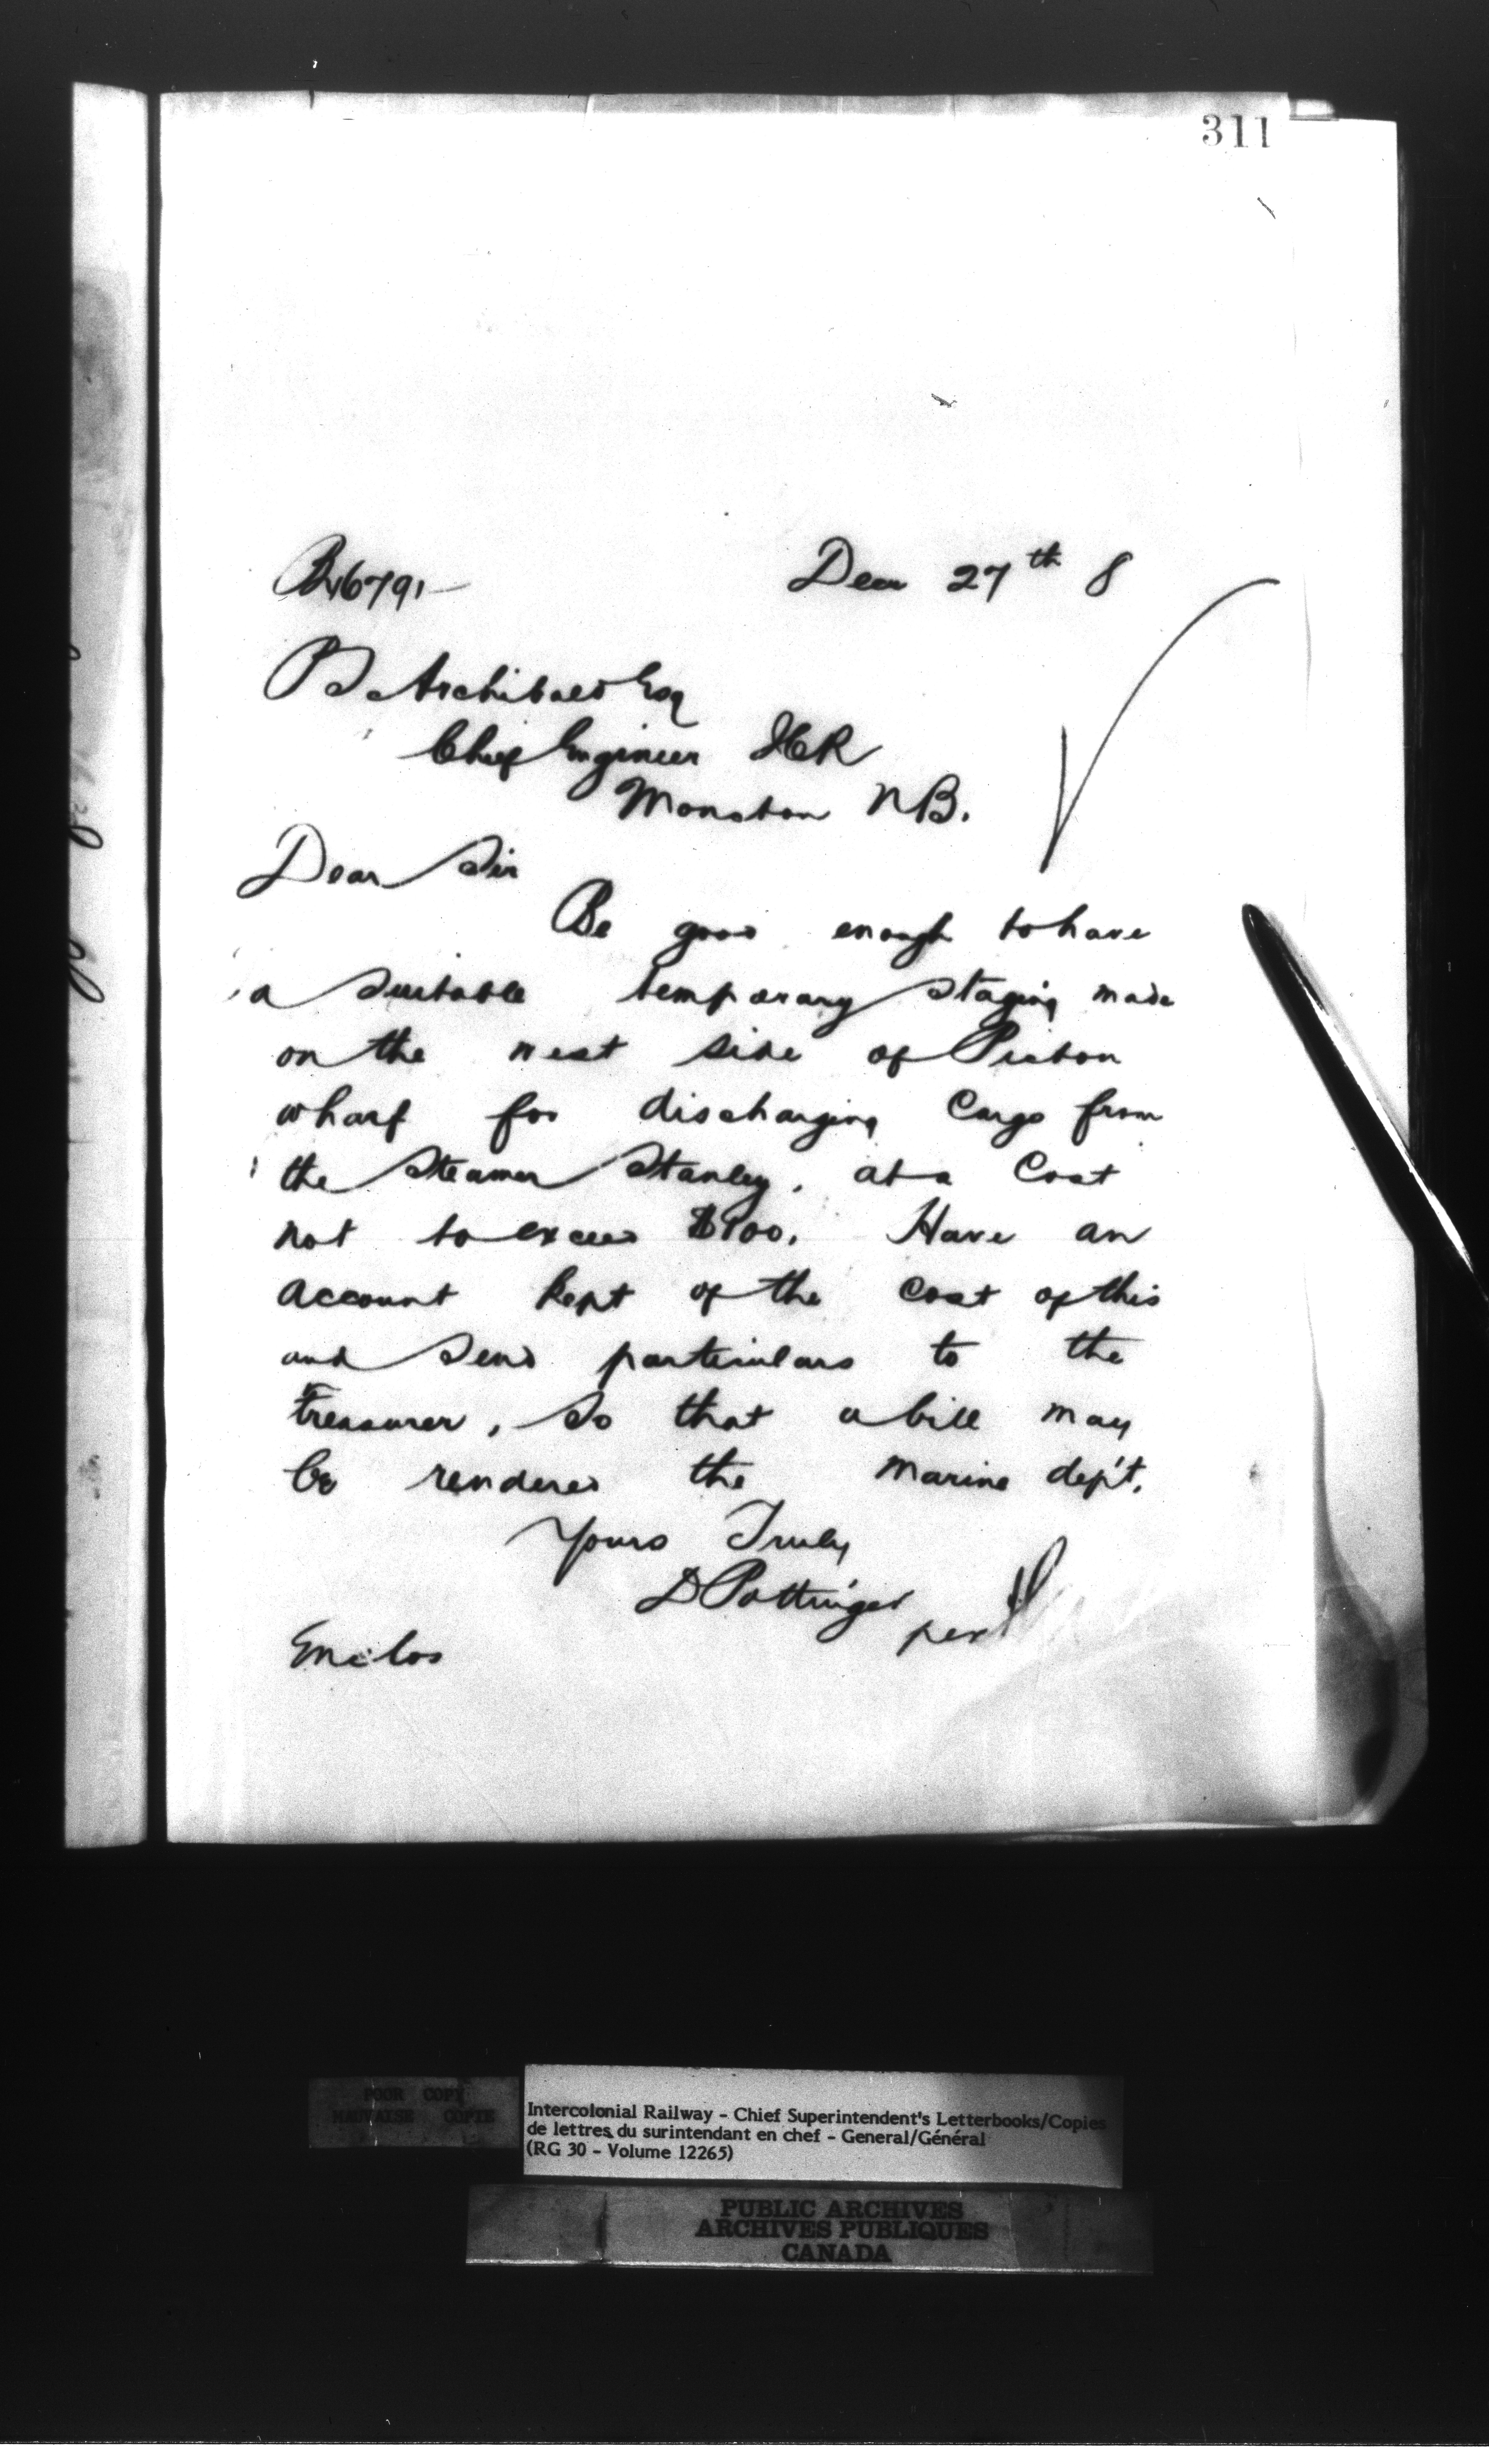 311
B46791
Decr 27th 8
P S Archibald Esq
Chief Engineer ICR
Moncton NB.
Dear Sir
Be good enough to have
a suitable temporary staging made
on the west side of Pictou
wharf for discharging Cargo from
the Steamer Stanley, at a Cost
not to exceed $100. Have an
account kept of the cost of this
and send particulars to the
Treasurer, so that a bill may
be rendered the Marine dep't.
Yours Truly
D Pottinger
per
Enclos
POOR COPY
MAUVAISE COPIE
Intercolonial Railway - Chief Superintendent's Letterbooks/Copies
de lettres du surintendant en chef - General/Général
(RG 30 - Volume 12265)
PUBLIC ARCHIVES
ARCHIVES PUBLIQUES
CANADA